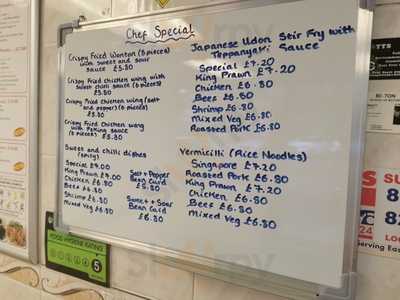 Chef Special
Crispy Fried Wonton (8 pieces)
with sweet and sour
sauce £5.80
Crispy fried chicken wing with
sweet chilli sauce (8 pieces)
£5.80
Crispy Fried chicken wing (salt
and pepper) (8 pieces)
£5.80
Crispy Fried Chicken wing
with Peking sauce
(8 pieces) £5.80
Sweet and chilli dishes
(spicy)
Special £7.00
King Prawn £7.00
Chicken £6.80
Beef £6.80
Shrimp £6.80
Mixed Veg £6.80
Salt + Pepper
Bean Curd
£5.80
Sweet + Sour
Bean Curd
£6.80
Japanese Udon Stir Fry with
Teppanyaki Sauce
Special £7.20
King Prawn £7.20
Chicken £6.80
Beef £6.80
Shrimp £6.80
Mixed Veg £6.80
Roasted Pork £6.80
Vermicilli (Rice Noodles)
Singapore £7.20
Roasted Pork £6.80
King Prawn £7.20
Chicken £6.80
Beef £6.80
Mixed Veg £6.80
FOOD HYGIENE RATING
5
SUPS
24
LOCA
Serving Eas